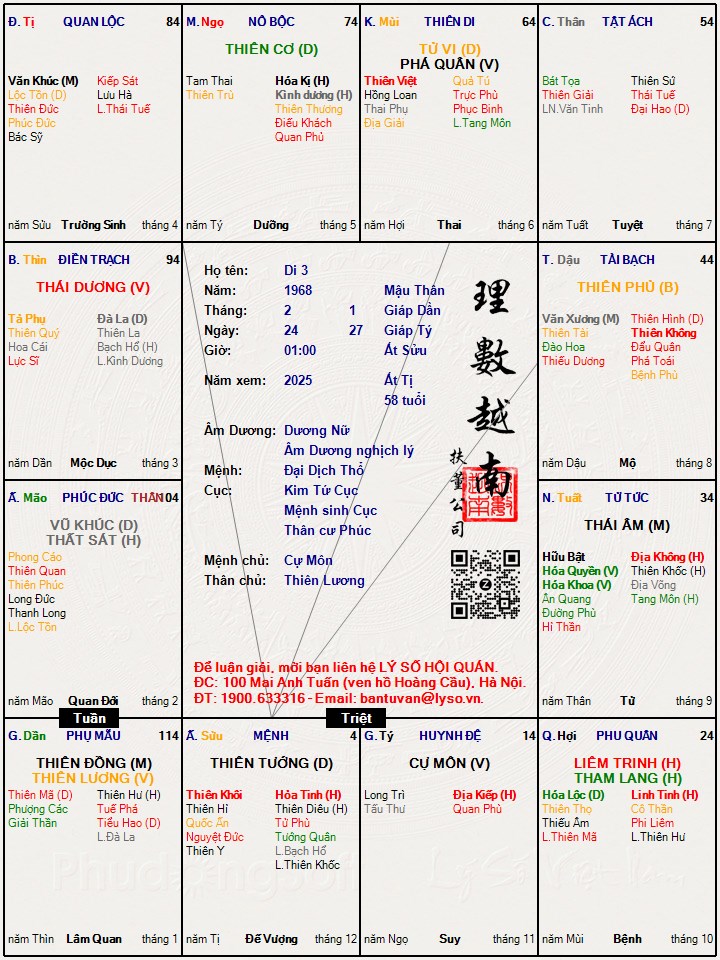 Đ. Tị QUAN LỘC 84
Văn Khúc (M) Kiếp Sát
Lộc Tồn (D) Lưu Hà
Thiên Đức L.Thái Tuế
Phúc Đức
Bác Sỹ
năm Sửu Trường Sinh tháng 4
M. Ngọ NÔ BỘC 74
THIÊN CƠ (D)
Tam Thai Hóa Kị (H)
Thiên Trù Kình dương (H)
Thiên Thương
Điếu Khách
Quan Phủ
năm Tý Dưỡng tháng 5
K. Mùi THIÊN DI 64
TỬ VI (D)
PHÁ QUÂN (V)
Thiên Việt Quả Tú
Hồng Loan Trực Phù
Thai Phụ Phục Binh
Địa Giải L.Tang Môn
năm Hợi Thai tháng 6
C. Thân TẬT ÁCH 54
Bát Tọa Thiên Sứ
Thiên Giải Thái Tuế
LN.Văn Tinh Đại Hao (D)
năm Tuất Tuyệt tháng 7
B. Thìn ĐIỀN TRẠCH 94
THÁI DƯƠNG (V)
Tả Phụ Đà La (D)
Thiên Quý Thiên La
Hoa Cái Bạch Hổ (H)
Lực Sĩ L.Kình Dương
năm Dần Mộc Dục tháng 3
Họ tên: Di 3
Năm: 1968 Mậu Thân
Tháng: 2 1 Giáp Dần
Ngày: 24 27 Giáp Tý
Giờ: 01:00 Ất Sửu
Năm xem: 2025 Ất Tị
58 tuổi
Âm Dương: Dương Nữ
Âm Dương nghịch lý
Mệnh: Đại Dịch Thổ
Cục: Kim Tứ Cục
Mệnh sinh Cục
Thân cư Phúc
Mệnh chủ: Cự Môn
Thân chủ: Thiên Lương
理數越南
扶董公司
Để luận giải, mời bạn liên hệ LÝ SỐ HỘI QUÁN.
ĐC: 100 Mai Anh Tuấn (ven hồ Hoàng Cầu), Hà Nội.
ĐT: 1900.633316 - Email: bantuvan@lyso.vn.
T. Dậu TÀI BẠCH 44
THIÊN PHỦ (B)
Văn Xương (M) Thiên Hình (D)
Thiên Tài Thiên Không
Đào Hoa Đẩu Quân
Thiếu Dương Phá Toái
Bệnh Phù
năm Dậu Mộ tháng 8
Ấ. Mão PHÚC ĐỨC THÂN 104
VŨ KHÚC (D)
THẤT SÁT (H)
Phong Cáo
Thiên Quan
Thiên Phúc
Long Đức
Thanh Long
L.Lộc Tồn
năm Mão Quan Đới tháng 2
N. Tuất TỬ TỨC 34
THÁI ÂM (M)
Hữu Bật Địa Không (H)
Hóa Quyền (V) Thiên Khốc (H)
Hóa Khoa (V) Địa Võng
Ân Quang Tang Môn (H)
Đường Phù
Hỉ Thần
năm Thân Tử tháng 9
Tuần
Triệt
G. Dần PHỤ MẪU 114
THIÊN ĐỒNG (M)
THIÊN LƯƠNG (V)
Thiên Mã (D) Thiên Hư (H)
Phượng Các Tuế Phá
Giải Thần Tiểu Hao (D)
L.Đà La
năm Thìn Lâm Quan tháng 1
Ấ. Sửu MỆNH 4
THIÊN TƯỚNG (D)
Thiên Khôi Hỏa Tinh (H)
Thiên Hỉ Thiên Diêu (H)
Quốc Ấn Tử Phù
Nguyệt Đức Tướng Quân
Thiên Y L.Bạch Hổ
L.Thiên Khốc
năm Tị Đế Vượng tháng 12
G. Tý HUYNH ĐỆ 14
CỰ MÔN (V)
Long Trì Địa Kiếp (H)
Tấu Thư Quan Phù
năm Ngọ Suy tháng 11
Q. Hợi PHU QUÂN 24
LIÊM TRINH (H)
THAM LANG (H)
Hóa Lộc (D) Linh Tinh (H)
Thiên Thọ Cô Thần
Thiếu Âm Phi Liêm
L.Thiên Mã L.Thiên Hư
năm Mùi Bệnh tháng 10